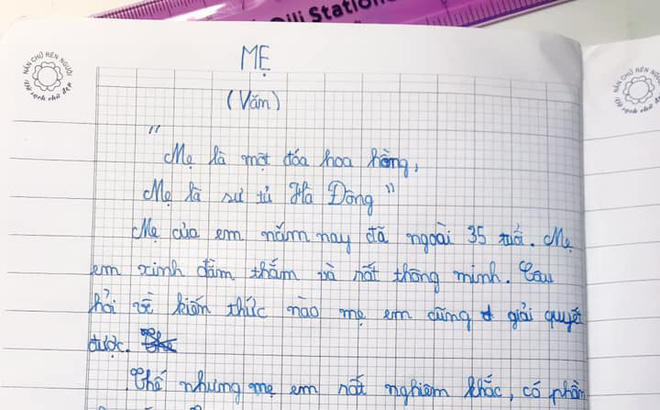 Oji Station
NẮN CHỮ RÈN NGƯỜI
Vở sạch chữ đẹp
MẸ
(Văn)
"
Mẹ là một đóa hoa hồng,
Mẹ là sư tử Hà Đông"
Mẹ của em nắm nay đã ngoài 35 tuổi. Mẹ
em xinh đằm thắm và rất thông minh. Câu
hỏi về kiến thức nào mẹ em cũng giải quyết
được.
Thế nhưng mẹ em rất nghiêm khắc, có phần